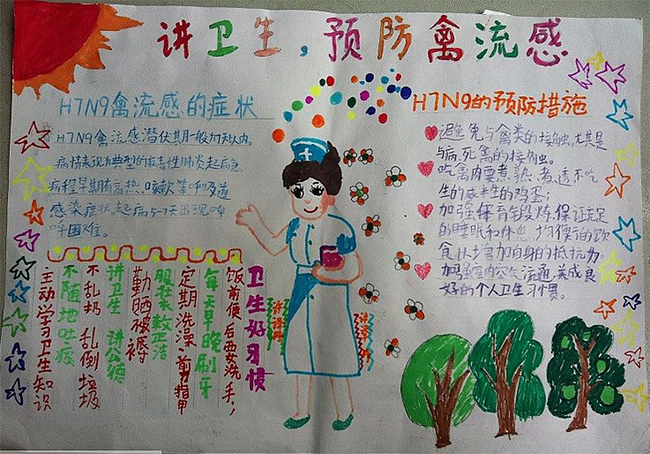 讲卫生,预防禽流感
H7N9禽流感的症状
H7N9禽流感潜伏期一般为7天以内。
病情表现为典型的病毒性肺炎起病急
病程早期有高热、咳嗽等呼吸道
感染症状,起病5-7天出现呼
吸困难。
H7N9的预防措施
避免与禽类的接触,尤其是
与病、死禽的接触。
吃禽肉要煮熟、煮透不吃
生的或半生的鸡蛋;
加强体育锻炼,保证充足
的睡眠和休息,均衡的饮
食从增加自身的抵抗力
加强室内空气流通,养成良
好的个人卫生习惯。
卫生好习惯
饭前便后要洗手,
每天早晚刷牙
定期洗澡、剪指甲
服装整洁
勤晒被褥
讲卫生 讲公德
不乱扔 乱倒垃圾
不随地吐痰
主动学习卫生知识